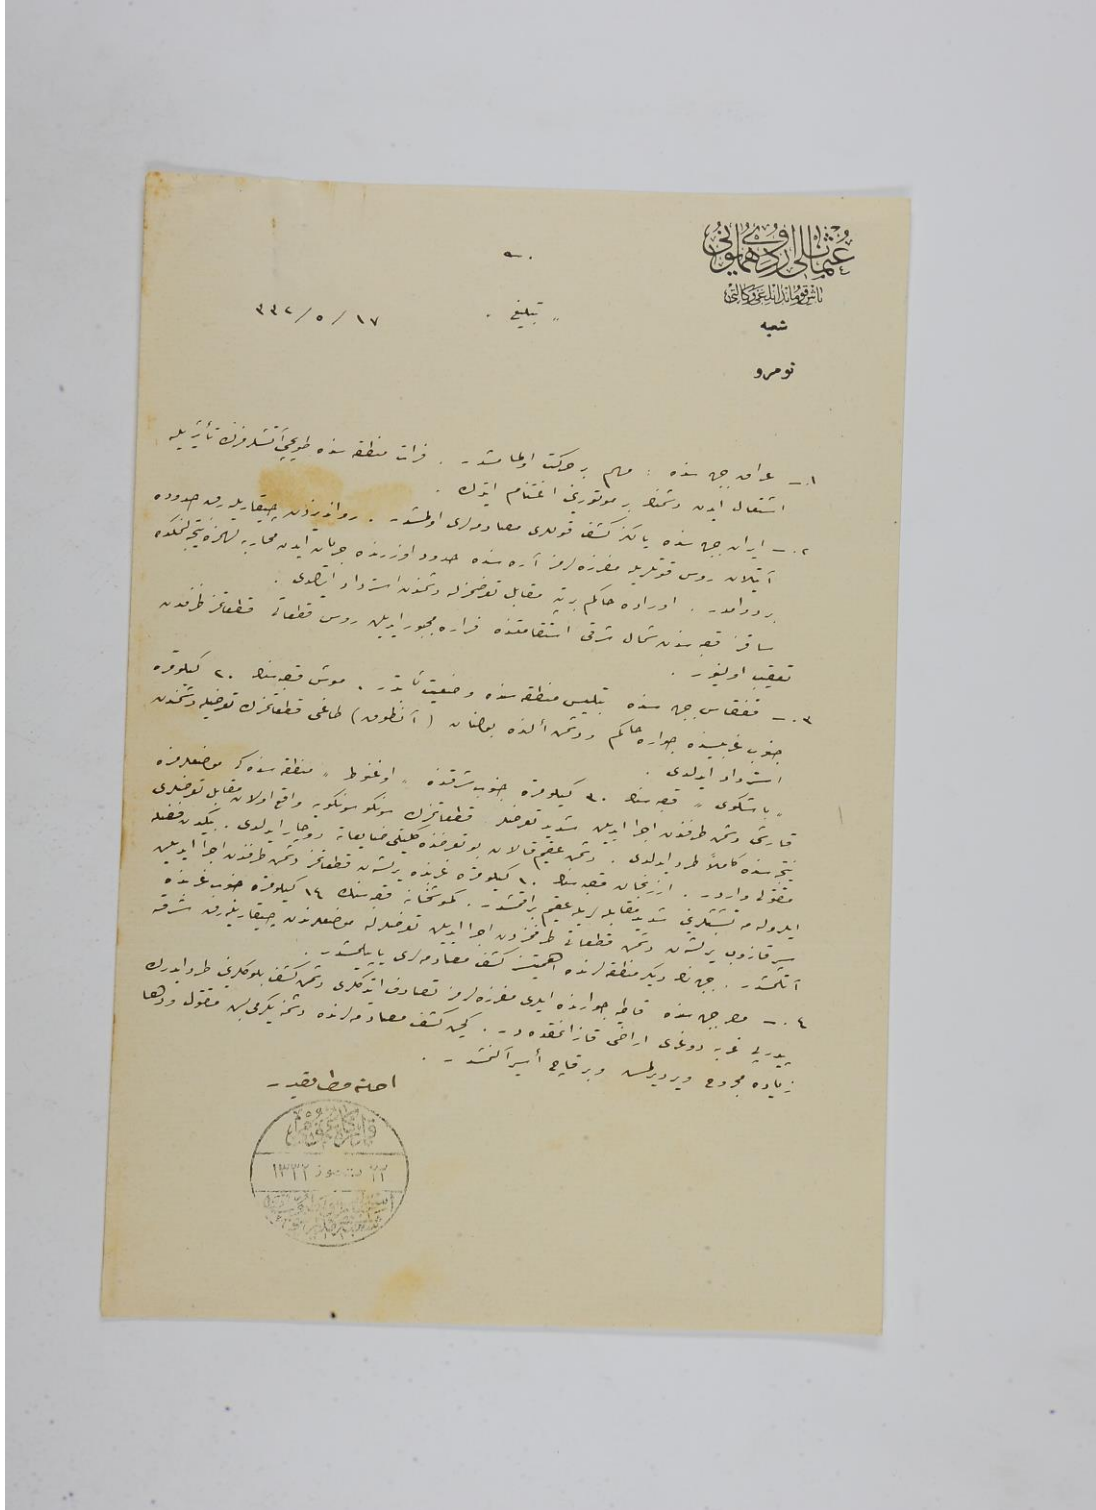 عثمانلی اردوی همایونی
باش قوماندانلغی وکالتی
شعبه
نومرو
تبلیغ
١٧/٥/٣٣٢
١ـ عراق جبهه سنده : مهم بر حرکت اولمامشدر . فرات منطقه سنده طوپچی آتشلرمزك تأثیریله
اشتعال ایدن دشمنك بر موتورینی اغتنام ایتدك .
٢ـ ایران جبهه سنده یالكز كشف قوللری مصادمه لری اولمشدر . رواندزدن چیقاریله رق حدوده
آتیلان روس قوتلریله مفرزه لرمز آره سنده حدود اوزرنده جریان ایدن محاربه لهمزه نتیجه لنمكده
بر دوامدر . اوراده حاكم بر تپه مقابل تعرضمزله دشمندن استرداد ایدلدی .
ساقز قصبه سندن شمال شرقی استقامتنده فراره مجبور ایدیلن روس قطعاتی قطعاتمز طرفندن
تعقیب اولنیور .
٣ـ قفقاس جبهه سنده بتلیس منطقه سنده وضعیت ثابتدر . موش قصبه سنك ٢٠ كیلومتره
جنوب غربیسنده جواره حاكم و دشمن ألنده بولنان ( آنطوق ) طاغی قطعاتمزك تعرضیله دشمندن
استرداد ایدلدی .
قصبه سنك ٣٠ كیلومتره جنوب شرقنده « اوغنوط » منطقه سنده كی موضعلرمزه
قارشی دشمن طرفندن اجرا ایدیلن شدید تعرضلر قطعاتمزك سونكو سونكویه واقع اولان مقابل تعرضلری
نتیجه سنده كاملاً طرد ایدلدی . دشمن عقیم قالان بو تعرضنده كلیتلی ضایعاته دوچار ایدلدی . بیكدن فضله
مقتولی واردر . ارزنجان قصبه سنك ١٠ كیلومتره غربنده یرلشن قطعاتمز دشمن طرفندن اجرا ایدیلن
ایلروله مه تشبثلرینی شدید مقابله لریله عقیم براقمشدر . كموشخانه قصبه سنك ١٤ كیلومتره جنوب غربنده
سپر قازوب یرلشن دشمن قطعاتی طرفمزدن اجرا ایدیلن تعرضلرله موضعلرندن چیقاریله رق شرقه
آتلمشدر . جبهه نك دیكر منطقه لرنده اهمیتسز كشف مصادمه لری یاپیلمشدر .
٤ـ مصر جبهه سنده قاطیه جوارنده ایلری مفرزه لرمز تصادف ایتدكلری دشمن كشف بلوكلرینی طرد ایدرك
پیدرپی غربه دوغری اراضی قازانمقده در . كچن كشف مصادمه لرنده دشمن یكرمی بش مقتول و دها
زیاده مجروح ویردیرلمش و بر قاچ أسیر آلنمشدر .
١٣٣٢